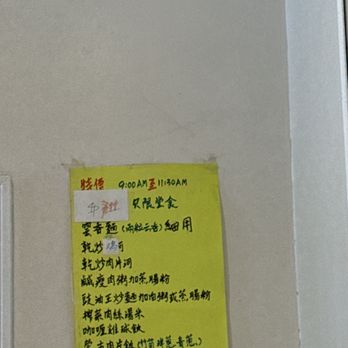 特價 9:00AM至11:30AM
只限堂食
雲吞麵(兩粒云吞)細用
乾炒河
乾炒肉片河
鹹瘦肉粥加茶腸粉
豉油王炒麵加肉粥或茶腸粉
榨菜肉絲湯米
咖喱雞球飯